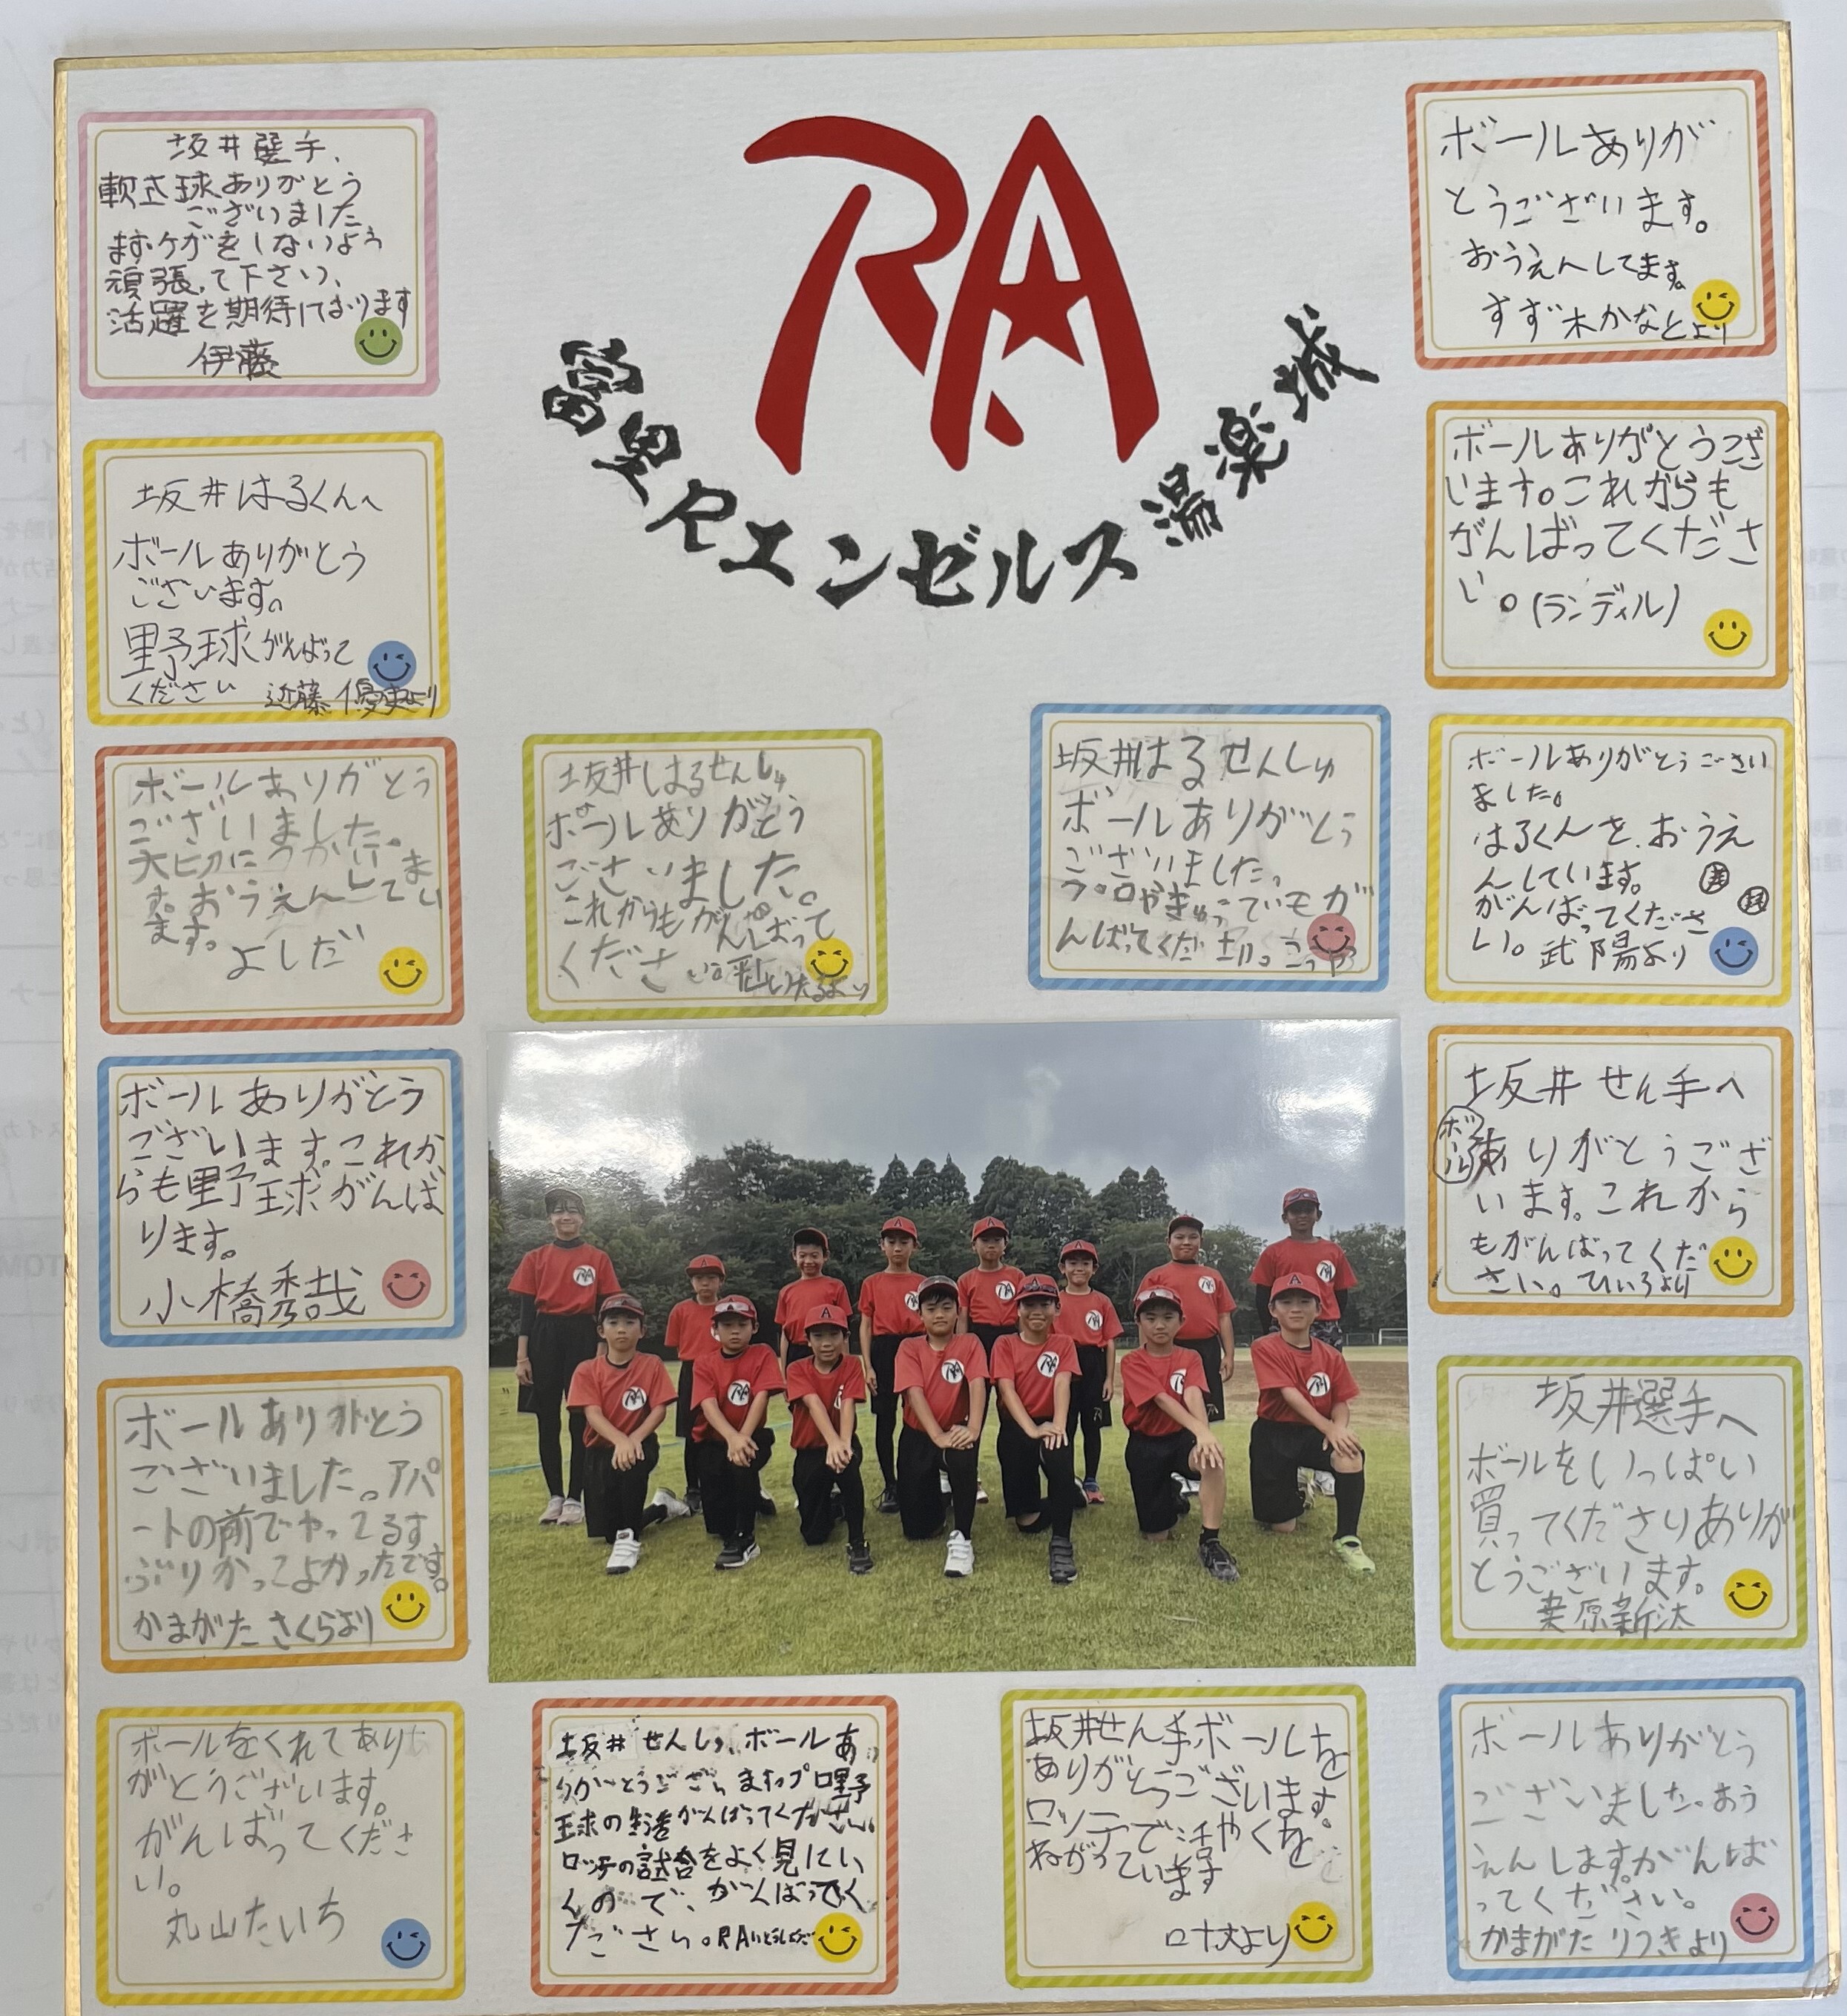 RA
富里RエンゼルスRA湯楽城
坂井選手、
軟式球ありがとう
ございました
まずケガをしないよう
頑張って下さい、
活躍を期待しております
伊藤
坂井はるくんへ
ボールありがとう
ございます。
野球がんばって
ください 近藤 優史より
ボールありがとう
ございました。
大切につかいま
す。おうえんしてい
ます。
よしだ
ボールありがとう
ございます。これか
らも野球がんば
ります。
小橋秀哉
ボールありがとう
ございました。アパ
ートの前でやってるす
ぶりかっこよかったです。
かまがた さくらより
ボールをくれてあり
がとうございます。
がんばってくださ
い。
丸山たいち
坂井はるせんしゅ
ボールありがとう
ございました。
これからもがんばって
ください。
坂井はるせんしゅ
ボールありがとう
ございました。
プロやきゅうでいもが
んばってください。
坂井せんしゅ、ボールあ
りがとうございますプロ野
球の生活がんばってください
ロッテの試合をよく見にい
くので、がんばってく
ださい。RA
坂井せん手ボールを
ありがとうございます。
ロッテで活やくを
ねがっています
叶丈より
ボールありが
とうございます。
おうえんしてます。
すず木かなとより
ボールありがとうござ
います。これからも
がんばってくださ
い。(ランディル)
ボールありがとうござい
ました。
はるくんを、おうえ
んしています。
がんばってくださ
い。武陽より
坂井せん手へ
ボール
ありがとうござ
います。これから
もがんばってくだ
さい。ひいろより
坂井選手へ
ボールをいっぱい
買ってくださりありが
とうございます。
桒原新汰
ボールありがとう
ございました。おう
えんします。がんば
ってください。
かまがた りつきより